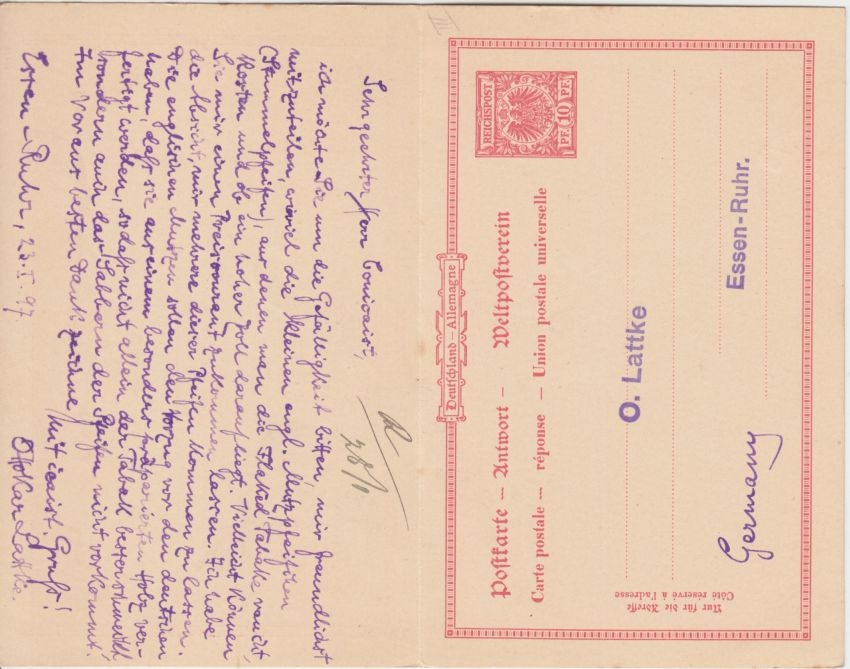 Sehr geehrter Herr
ich möchte Sie um die Gefälligkeit bitten, mir freundlichst
mitzuteilen, wieviel die kleinen engl. Mutzpfeifchen
(Stummelpfeifen), aus denen man die Flaked Tabake raucht,
Kosten und ob ein hoher Zoll darauf liegt. Vielleicht können
Sie mir einen Preiscourant zukommen lassen. Ich habe
die Absicht, mir mehrere dieser Pfeifen kommen zu lassen.
Die englischen Mutzen sollen den Vorzug vor den deutschen
haben, daß sie aus einem besonders präparierten Holz ver-
fertigt werden, so daß nicht allein der Tabak besser schmeckt
sondern auch das Sabbern der Pfeifen nicht vorkommt.
Im Voraus besten Dank! zeichne
Mit Gruß!
Essen Ruhr, 23.I.97
Ottokar Lattke
28/1
III
Deutschland – Allemagne
Postkarte – Antwort – Weltpostverein
Carte postale – réponse – Union postale universelle
REICHSPOST
PF. 10 PF.
O. Lattke
Essen-Ruhr.
Germany
Nur für die Adresse
Côté réservé à l'adresse